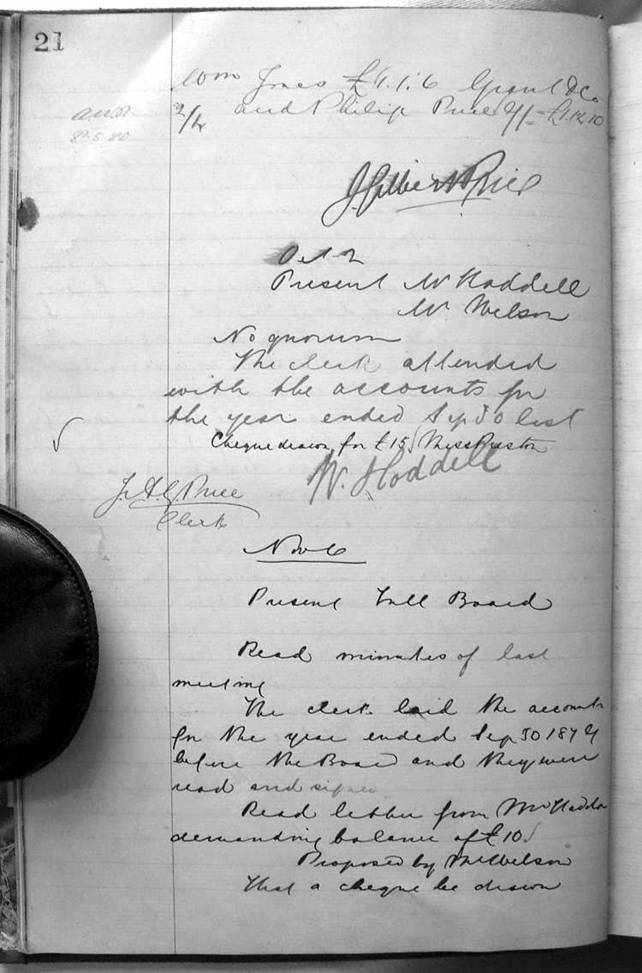 21
Wm Jones £1.1.6 Grant & Co
and Philip Price £1.14.10
J Gilbert Price
Oct 2
Present Mr Hoddell
Mr Welson
No quorum
The clerk attended
with the accounts for
the year ended Sep 30 last
Cheque drawn for £15 Miss Preston
W. Hoddell
J. A. G. Price
Clerk
Nov 6
Present Full Board
Read minutes of last
meeting
The clerk laid the accounts
for the year ended Sep 30 1879
before the Board and they were
read and signed
Read letter from Mr
demanding balance of £10
Proposed by Mr Welson
that a cheque be drawn